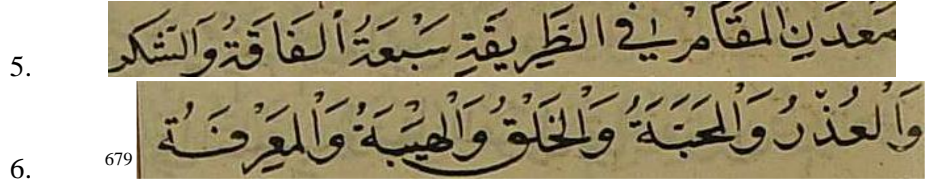 5. مَعْدَنِ المَقَامِ فِي الطَّرِيقَةِ سَبْعَةُ الفَاقَةُ وَالشكر
6. 679 وَالْعُذْرُ وَالْمَحَبَّةُ وَالْخَلْقُ وَالْهَيْبَةُ وَالْمَعْرِفَةُ